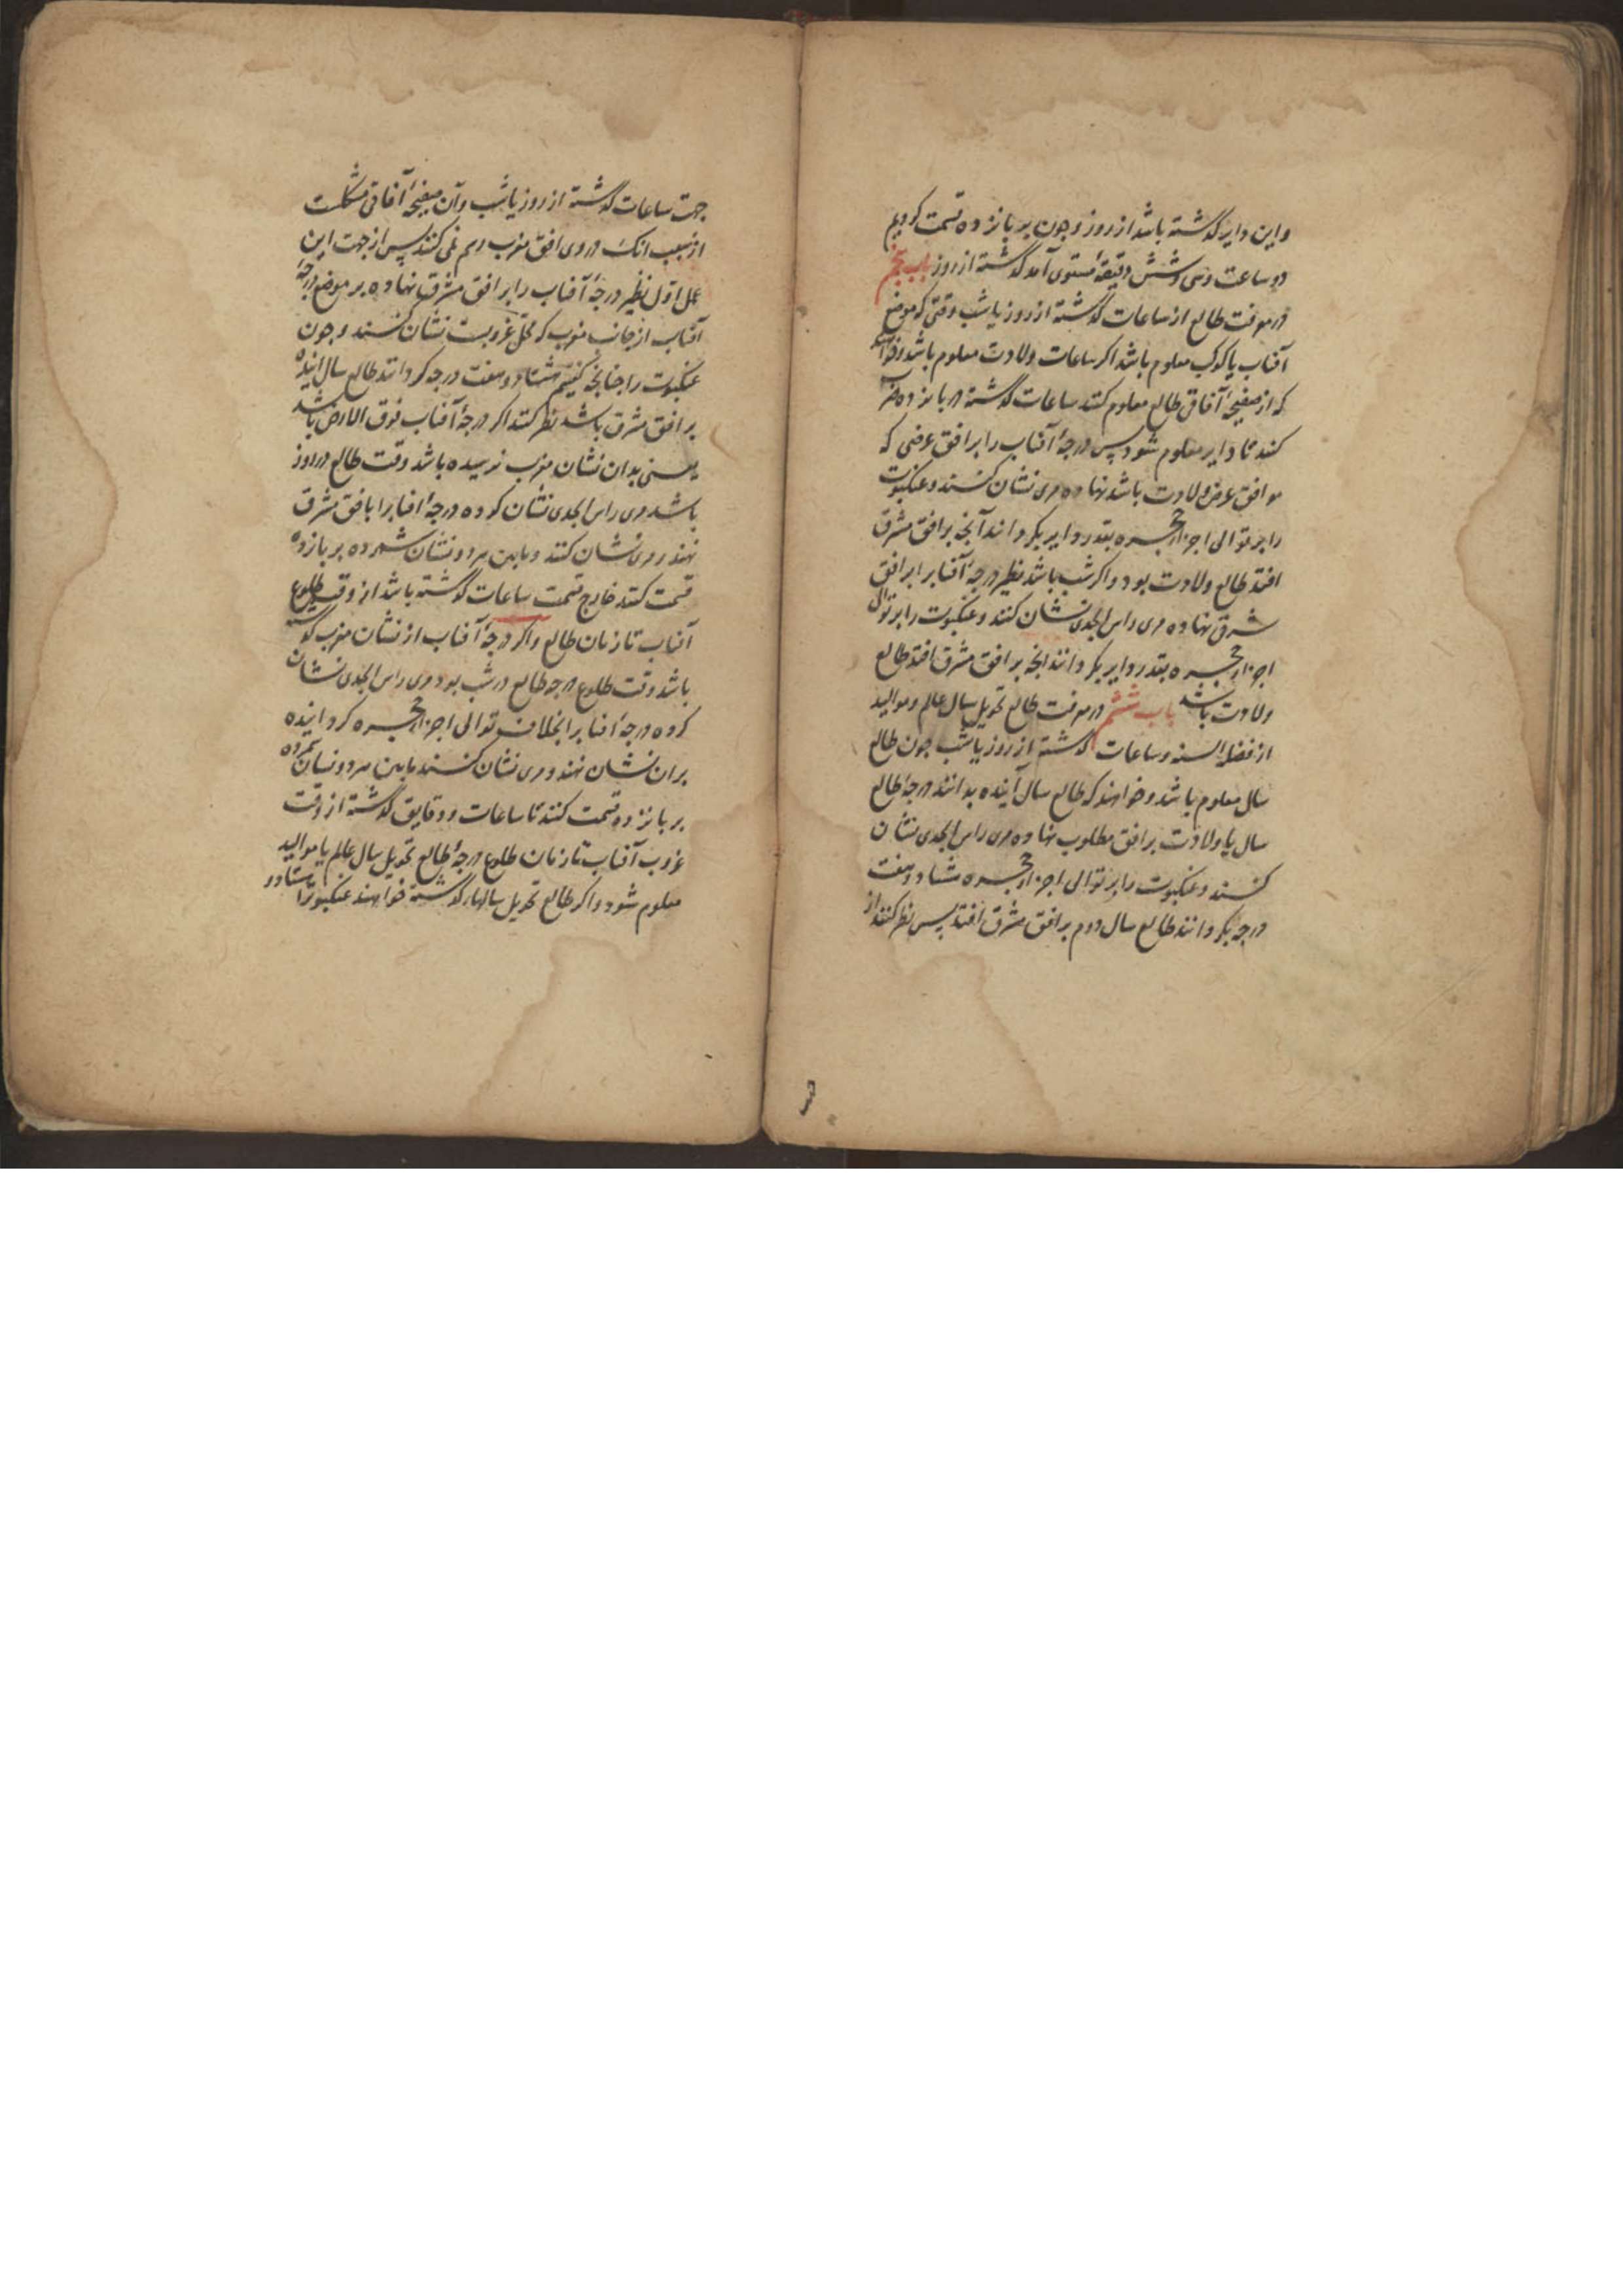 واین دایر گذشته باشد از روز وچون بر پانزده قسمت کردیم
دو ساعت وسی وشش دقیقهٔ مستوی آمد گذشته از روز باب پنجم
در معرفت طالع از ساعات گذشته از روز یا شب وقتی که موضع
آفتاب یا کوکب معلوم باشد اکر ساعات ولادت معلوم باشد وخواهند
که از صفیحهٔ آفاقی طالع معلوم کنند ساعات گذشته در پانزده ضرب
کنند تا دایر معلوم شود پس درجهٔ آفتاب را بر افق عرضی که
موافق عرض ولادت باشد نهاده مری نشان کنند وعنکبوت
را بر توالی اجزاء حجره بقدر دایر بکردانند آنچه بر افق مشرق
افتد طالع ولادت بود واکر شب باشد نظیر درجهٔ آفتابرا بر افق
شرق نهاده مری راس الجدی نشان کنند وعنکبوت را بر توالی
اجزاء حجره بقدر دایر بکردانند انچه بر افق مشرق افتد طالع
ولادت باشد باب ششم در معرفت طالع تحویل سال عالم وموالید
از فضل السنه وساعات گذشته از روز یا شب چون طالع
سال معلوم باشد وخواهند که طالع سال آینده بدانند درجهٔ طالع
سال یا ولادت بر افق مطلوب نهاده مری راس الجدی نشان
کنند وعنکبوت را بر توالی اجزاء حجره هشتاد وهفت
درجه بکردانند طالع سال دوم بر افق مشرق افتد پس نظر کنند از
جهت ساعات گذشته از روز یا شب وآن صفیحهٔ آفاقی مشکلست
از سبب انک در وی افق مغرب رسم نمی کنند پس از جهت این
عمل اول نظیر درجهٔ آفتاب را بر افق مشرق نهاده بر موضع درجهٔ
آفتاب از جانب مغرب که محل غروبست نشان کنند وچون
عنکبوت را چنانچه کفتیم هشتاد وهفت درجه کردانند طالع سال اینده
بر افق مشرق باشد نظر کنند اکر درجهٔ آفتاب فوق الارض باشد
یعنی بدان نشان مغرب نرسیده باشد وقت طالع در روز
باشد مری راس الجدی نشان کرده درجهٔ افتابرا بافق مشرق
نهند ومری نشان کنند ومابین هر دو نشان شمرده بر پانزده
قسمت کنند خارج قسمت ساعات گذشته باشد از وقت طلوع
آفتاب تا زمان طالع واکر درجهٔ آفتاب از نشان مغرب گذشته
باشد وقت طلوع درجه طالع در شب بود مری راس الجدی نشان
کرده درجهٔ افتابرا بخلاف توالی اجزاء حجره کردانیده
بران نشان نهند ومری نشان کنند مابین هر دو نشان شمرده
بر پانزده قسمت کنند تا ساعات ودقایق گذشته از وقت
غروب آفتاب تا زمان طلوع درجهٔ طالع تحویل سال عالم یا موالید
معلوم شود واکر طالع تحویل سالهاء گذشته خواهند عنکبوترا